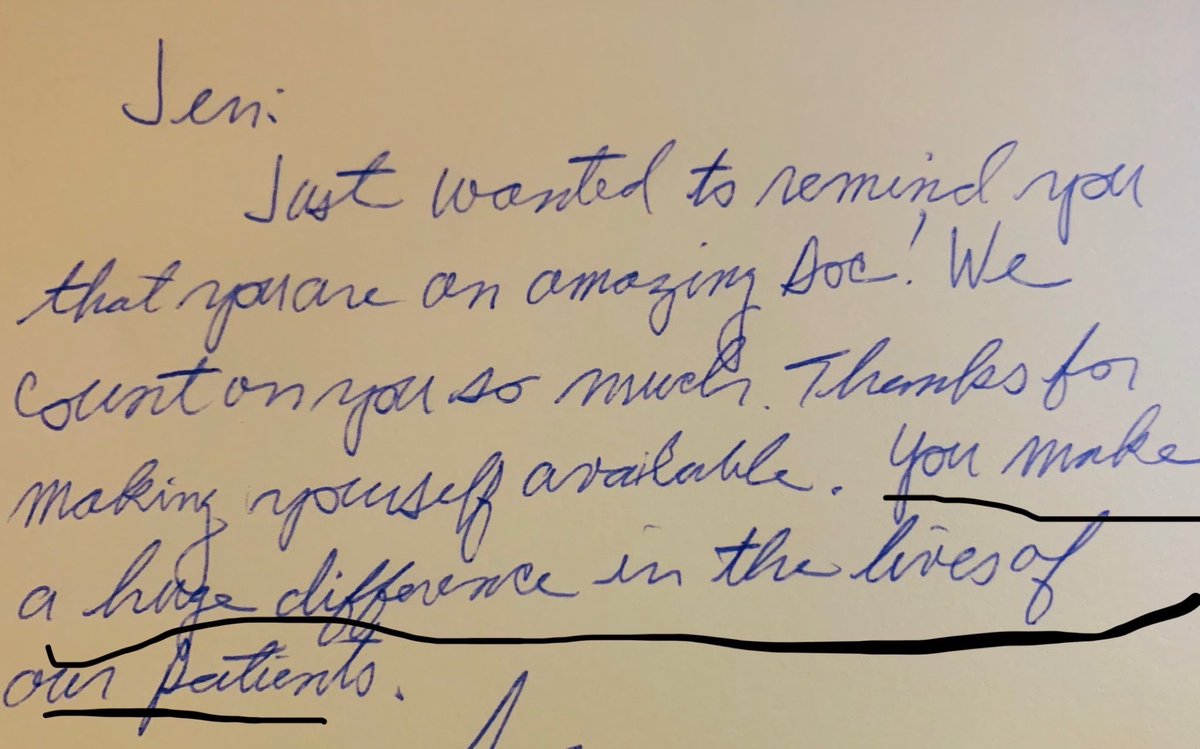 Jen:
Just wanted to remind you
that you are an amazing doc! We
count on you so much. Thanks for
making yourself available. You make
a huge difference in the lives of
our patients.